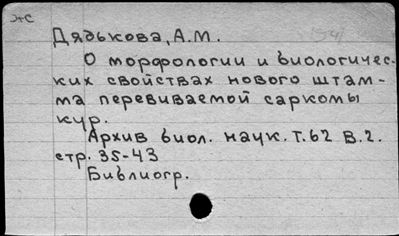 жс
Дядькова, А.М.
О морфологии и биологичес-
ких свойствах нового штам-
ма перевиваемой саркомы
кур.
Архив биол. наук. т.62 в.2.
стр. 35-43
Библиогр.